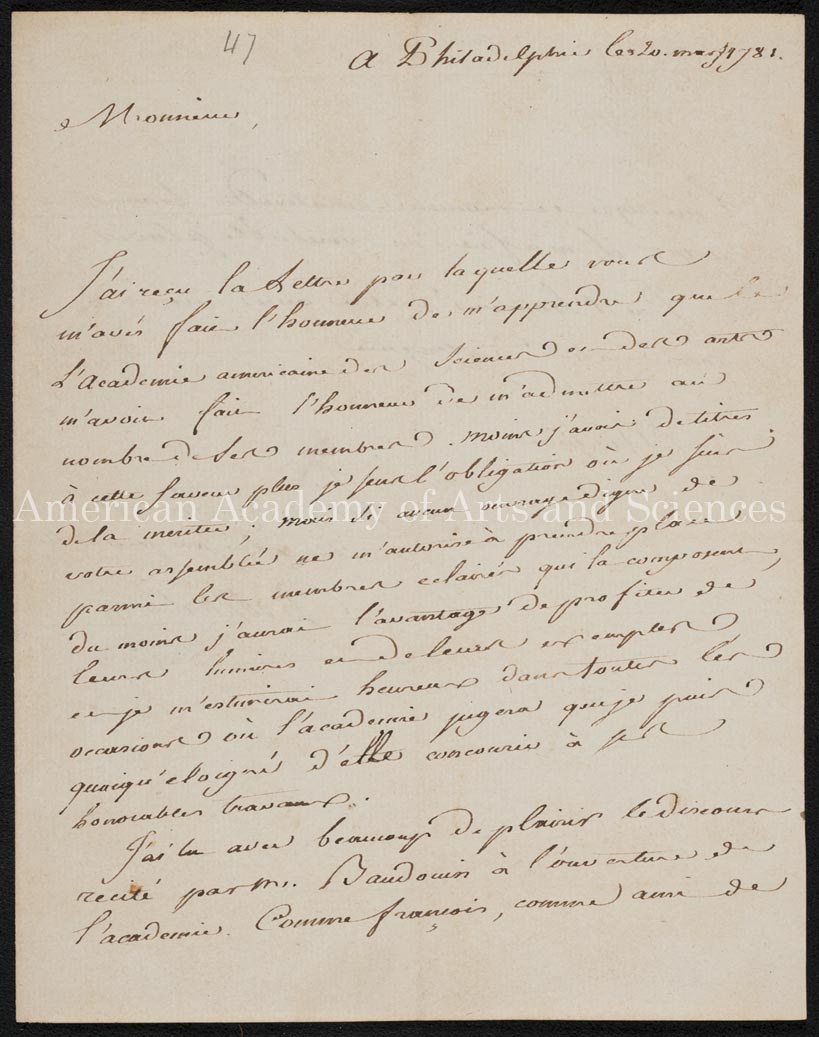 47
a Philadelphie le 20. mars 1781.
Monsieur,
J'ai reçu la Lettre par laquelle vous
m'avés fait l'honneur de m'apprendre que
L'Academie americaine des Sciences et des arts
m'avoit fait l'honneur de m'admettre au
nombre de ses membres. moins j'avois de titres
à cette faveur plus je sens l'obligation où je suis
American Academy of Arts and Sciences
de la meriter; mais si aucun ouvrage digne de
votre assemblée ne m'autorise à prendre place
parmi les membres eclairés qui la composent,
du moins j'aurai l'avantage de profiter de
leurs lumieres et de leurs exemples
et je m'estimerai heureux dans toutes les
occasions où l'academie jugera que je puis
quoiqu'eloigné d'elle concourir à ses
honorables travaux.
J'ai lu avec beaucoup de plaisir le discours
recité par M. Baudouin à l'ouverture de
l'academie. Comme françois, comme ami de